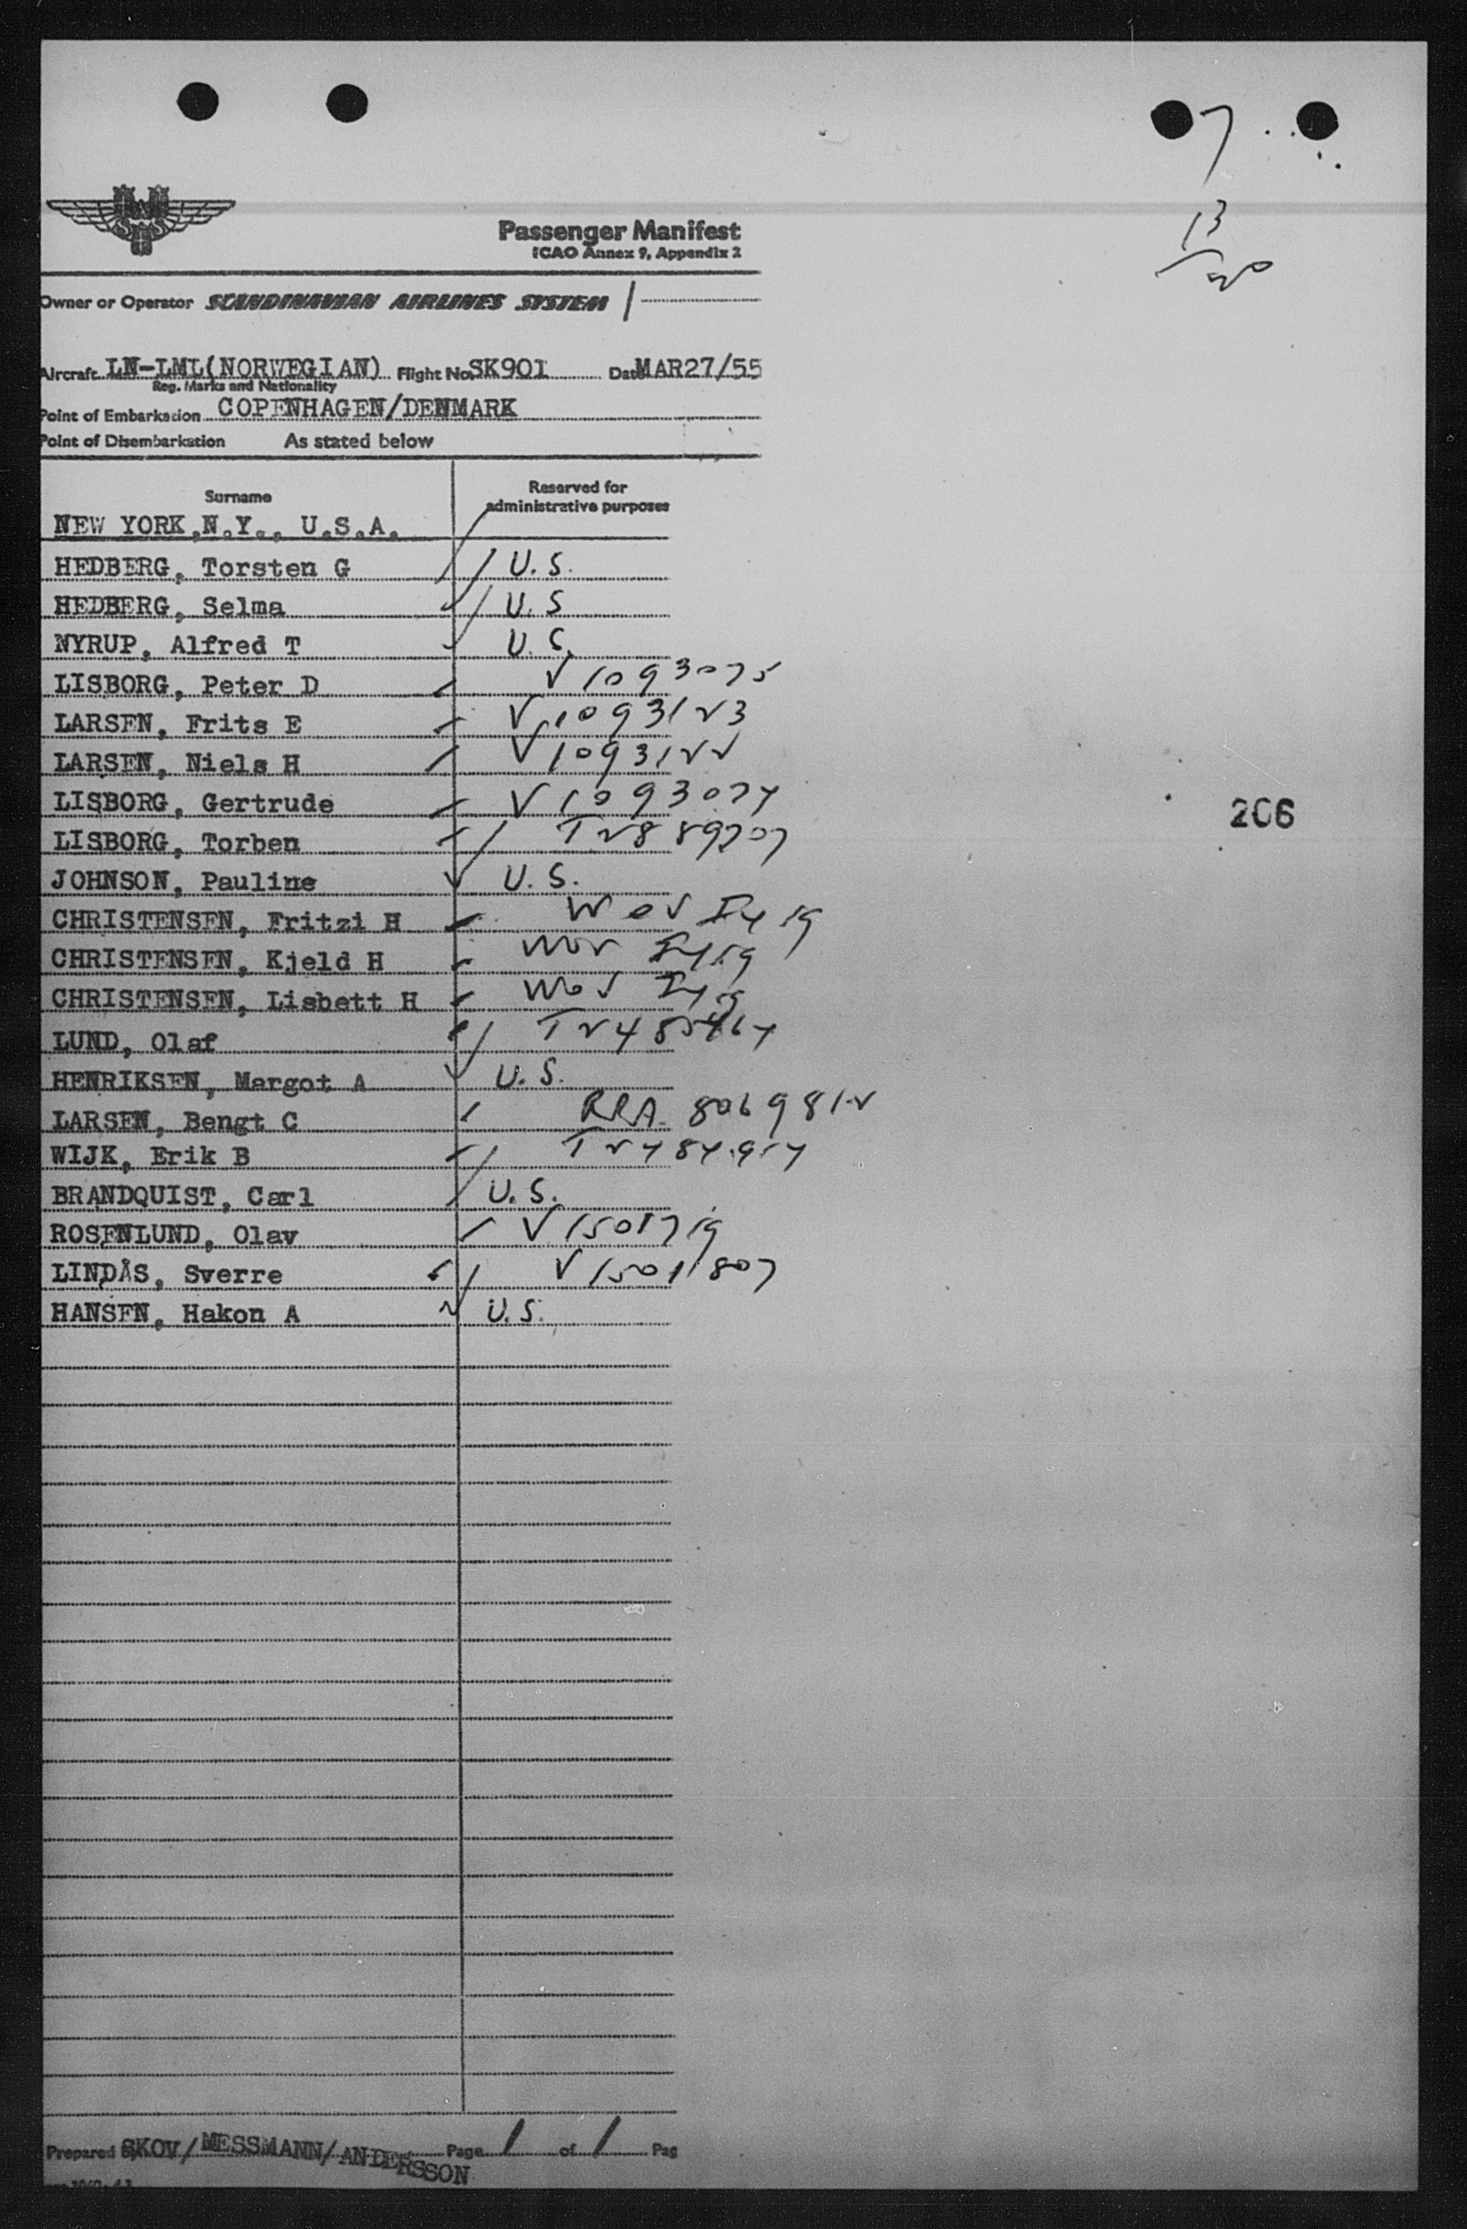 7
13
20
SAS
Passenger Manifest
ICAO Annex 9, Appendix 2
Owner or Operator SCANDINAVIAN AIRLINES SYSTEM
Aircraft LN-LML(NORWEGIAN) Flight No. SK901 Date MAR27/55
Reg. Marks and Nationality
Point of Embarkation COPENHAGEN/DENMARK
Point of Disembarkation As stated below
Surname Reserved for administrative purposes
NEW YORK,N.Y., U.S.A.
HEDBERG, Torsten G U.S.
HEDBERG, Selma U.S
NYRUP, Alfred T U.S.
LISBORG, Peter D V1093075
LARSEN, Frits E V1093123
LARSEN, Niels H V1093122
LISBORG, Gertrude V1093074
LISBORG, Torben T2889707
206
JOHNSON, Pauline U.S.
CHRISTENSEN, Fritzi H
CHRISTENSEN, Kjeld H
CHRISTENSEN, Lisbett H
LUND, Olaf
HENRIKSEN, Margot A U.S.
LARSEN, Bengt C RRA 8069812
WIJK, Erik B
BRANDQUIST, Carl U.S.
ROSENLUND, Olav V1501719
LINDÅS, Sverre V1501807
HANSEN, Hakon A U.S.
Prepared SKOV/MESSMANN/ANDERSSON Page 1 of 1 Pag